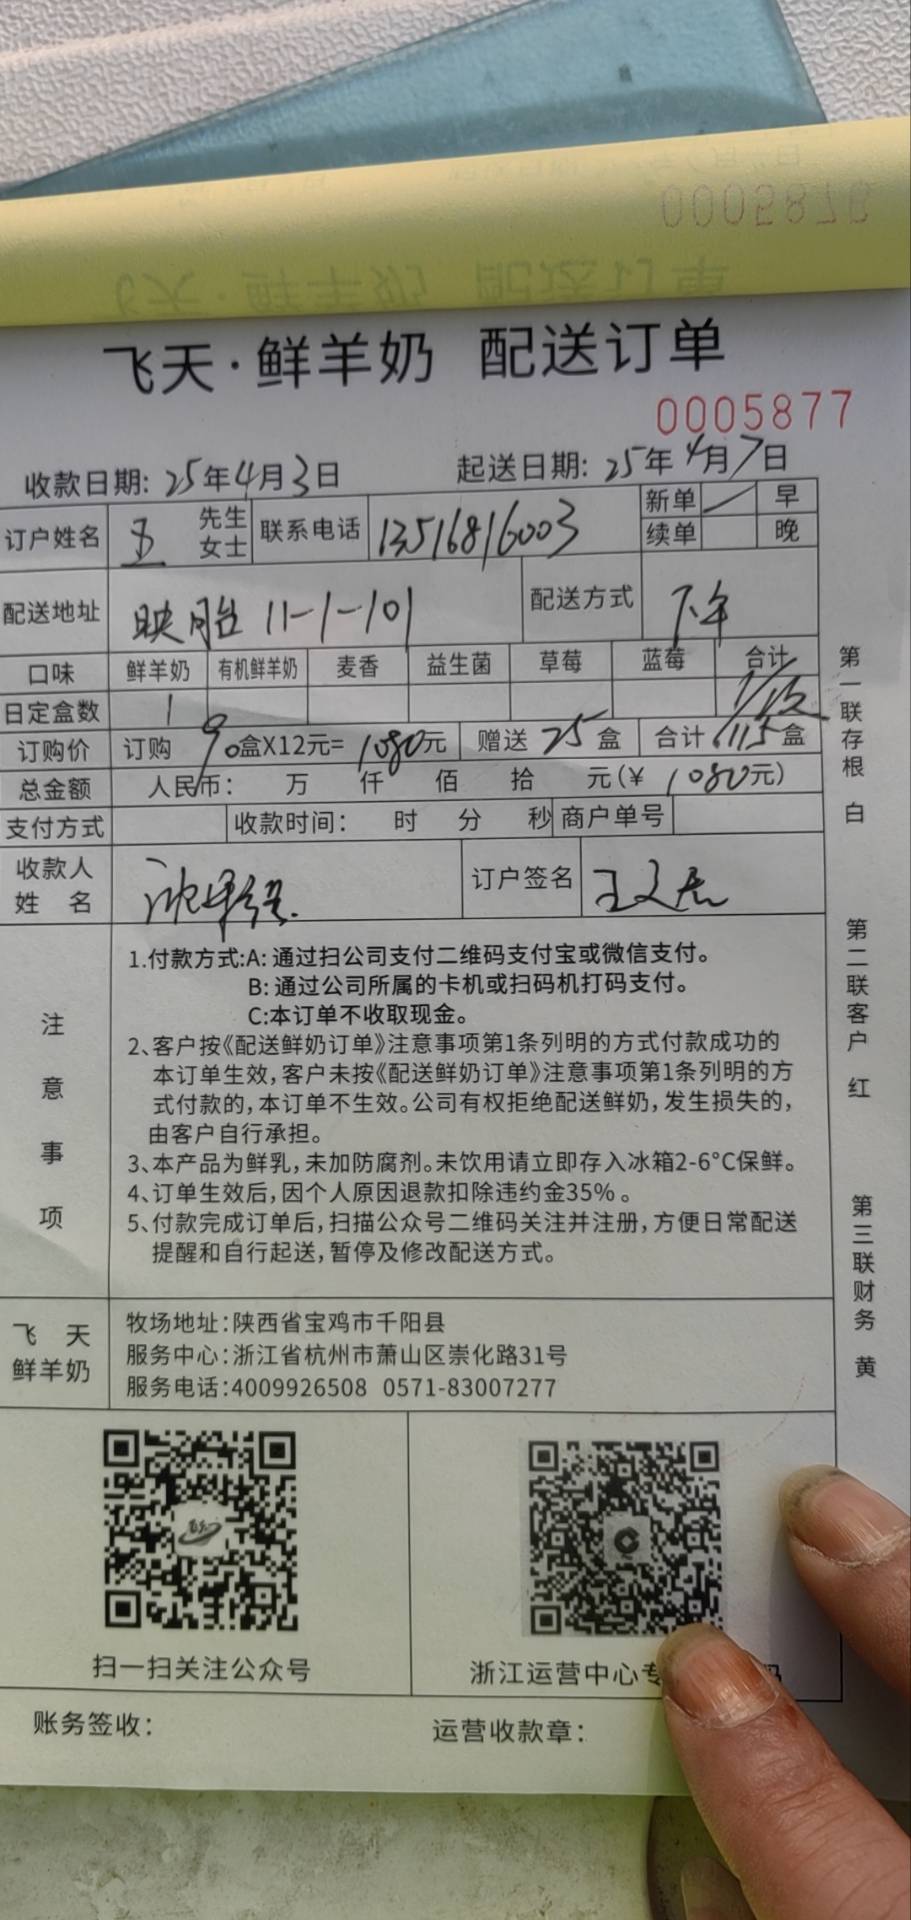 0005876
飞天·鲜羊奶 配送订单
0005877
收款日期: 25年4月3日 起送日期: 25年4月7日
订户姓名 王 先生 女士 联系电话 13516816003 新单 / 早
续单 晚
配送地址 映月台 11-1-101 配送方式 下午
口味 鲜羊奶 有机鲜羊奶 麦香 益生菌 草莓 蓝莓 合计
日定盒数 1 1/次
订购价 订购 90盒X12元=1080元 赠送 25 盒 合计 115盒
总金额 人民币: 万 仟 佰 拾 元(¥ 1080元)
支付方式 收款时间: 时 分 秒 商户单号
收款人 姓 名 订户签名
注意事项
1.付款方式:A: 通过扫公司支付二维码支付宝或微信支付。
B: 通过公司所属的卡机或扫码机打码支付。
C:本订单不收取现金。
2、客户按《配送鲜奶订单》注意事项第1条列明的方式付款成功的
本订单生效,客户未按《配送鲜奶订单》注意事项第1条列明的方
式付款的,本订单不生效。公司有权拒绝配送鲜奶,发生损失的,
由客户自行承担。
3、本产品为鲜乳,未加防腐剂。未饮用请立即存入冰箱2-6°C保鲜。
4、订单生效后,因个人原因退款扣除违约金35%。
5、付款完成订单后,扫描公众号二维码关注并注册,方便日常配送
提醒和自行起送,暂停及修改配送方式。
飞 天
鲜羊奶
牧场地址:陕西省宝鸡市千阳县
服务中心:浙江省杭州市萧山区崇化路31号
服务电话:4009926508 0571-83007277
扫一扫关注公众号
浙江运营中心专
账务签收:
运营收款章:
第一联存根 白
第二联客户 红
第三联财务 黄